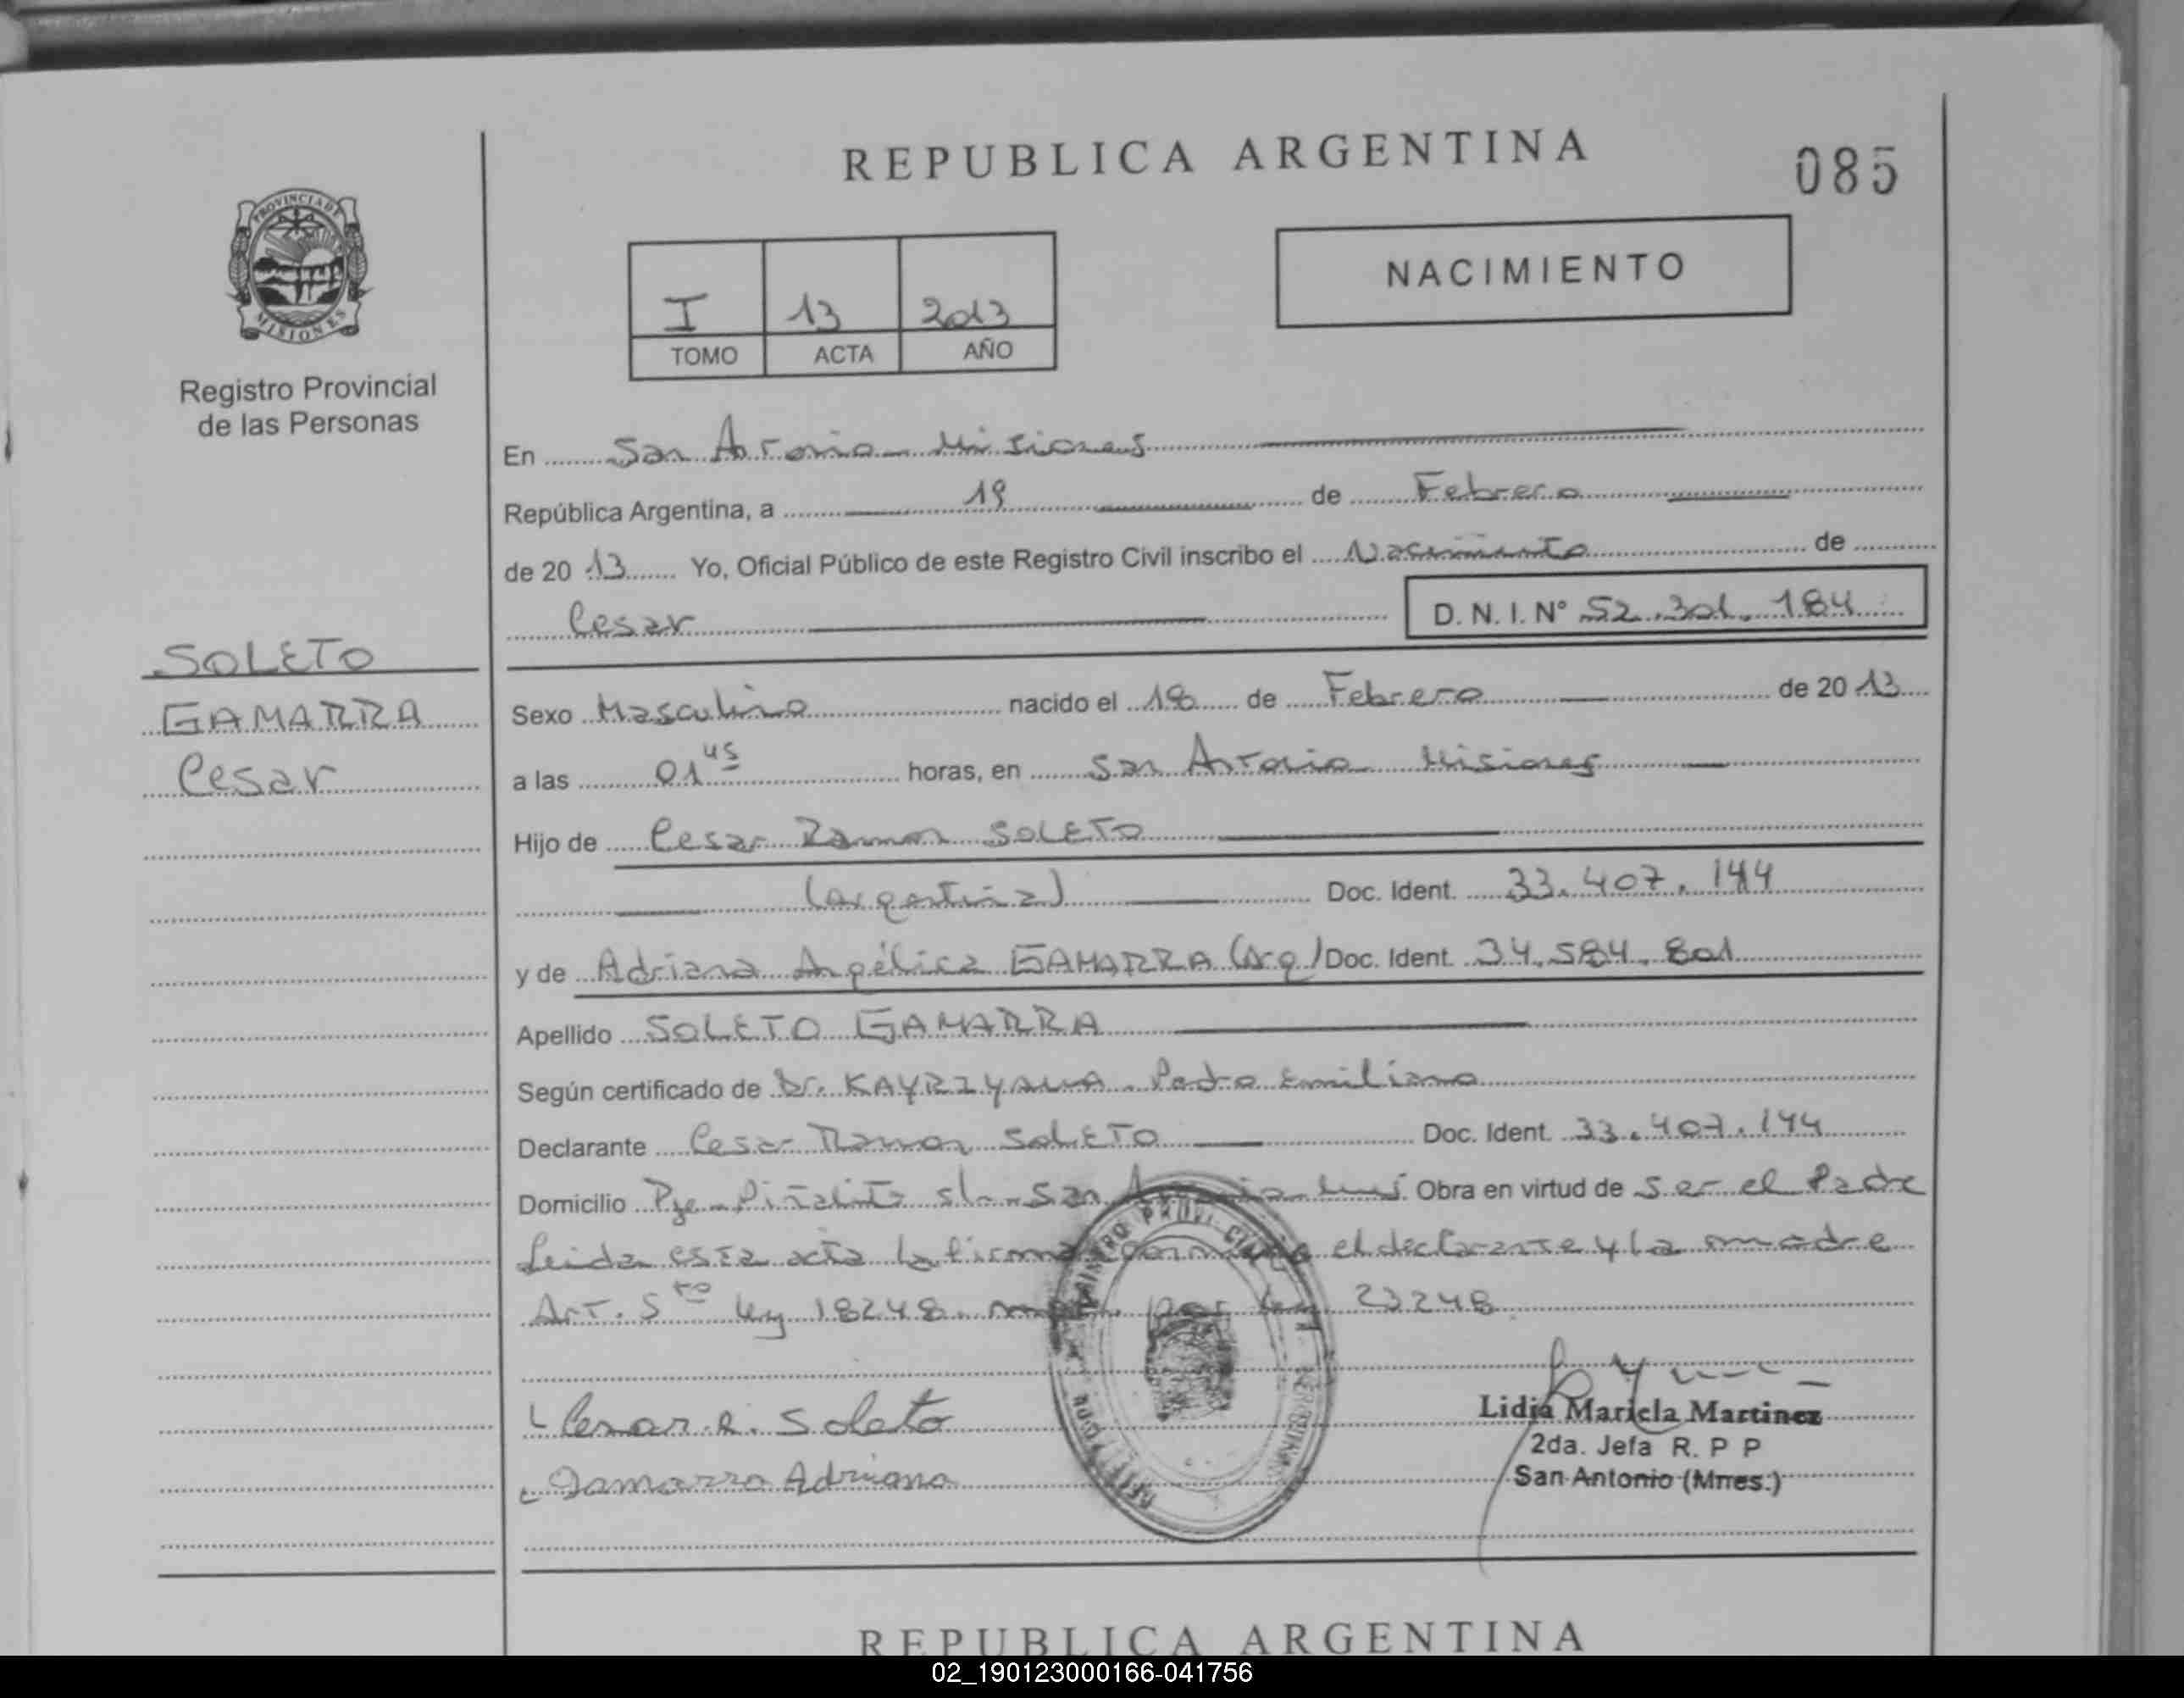 REPUBLICA ARGENTINA
085
PROVINCIA DE
MISIONES
Registro Provincial
de las Personas
I 13 2013
TOMO ACTA AÑO
NACIMIENTO
En San Antonio Misiones
República Argentina, a 19 de Febrero
de 20 13 Yo, Oficial Público de este Registro Civil inscribo el Nacimiento de
Cesar D. N. I. Nº 52.301.184
SOLETO
GAMARRA
Cesar
Sexo Masculino nacido el 18 de Febrero de 20 13
a las 01 45 horas, en San Antonio Misiones
Hijo de Cesar Ramon SOLETO
(argentina) Doc. Ident. 33.407.144
y de Adriana Angélica GAMARRA (Arg) Doc. Ident. 34.584.801
Apellido SOLETO GAMARRA
Según certificado de Dr. Pedro Emiliano
Declarante Cesar Ramon SOLETO Doc. Ident. 33.407.144
Domicilio Pje Piñalito s/n San Antonio Mns Obra en virtud de Ser el Padre
Leida esta acta la firma conmigo el declarante y la madre
Art. 5to Ley 18248. por Ley 23248
Cesar R. Soleto
Gamarra Adriana
Lidia Mariela Martinez
2da. Jefa R. P P
San Antonio (Mnes.)
REPUBLICA ARGENTINA
02_190123000166-041756